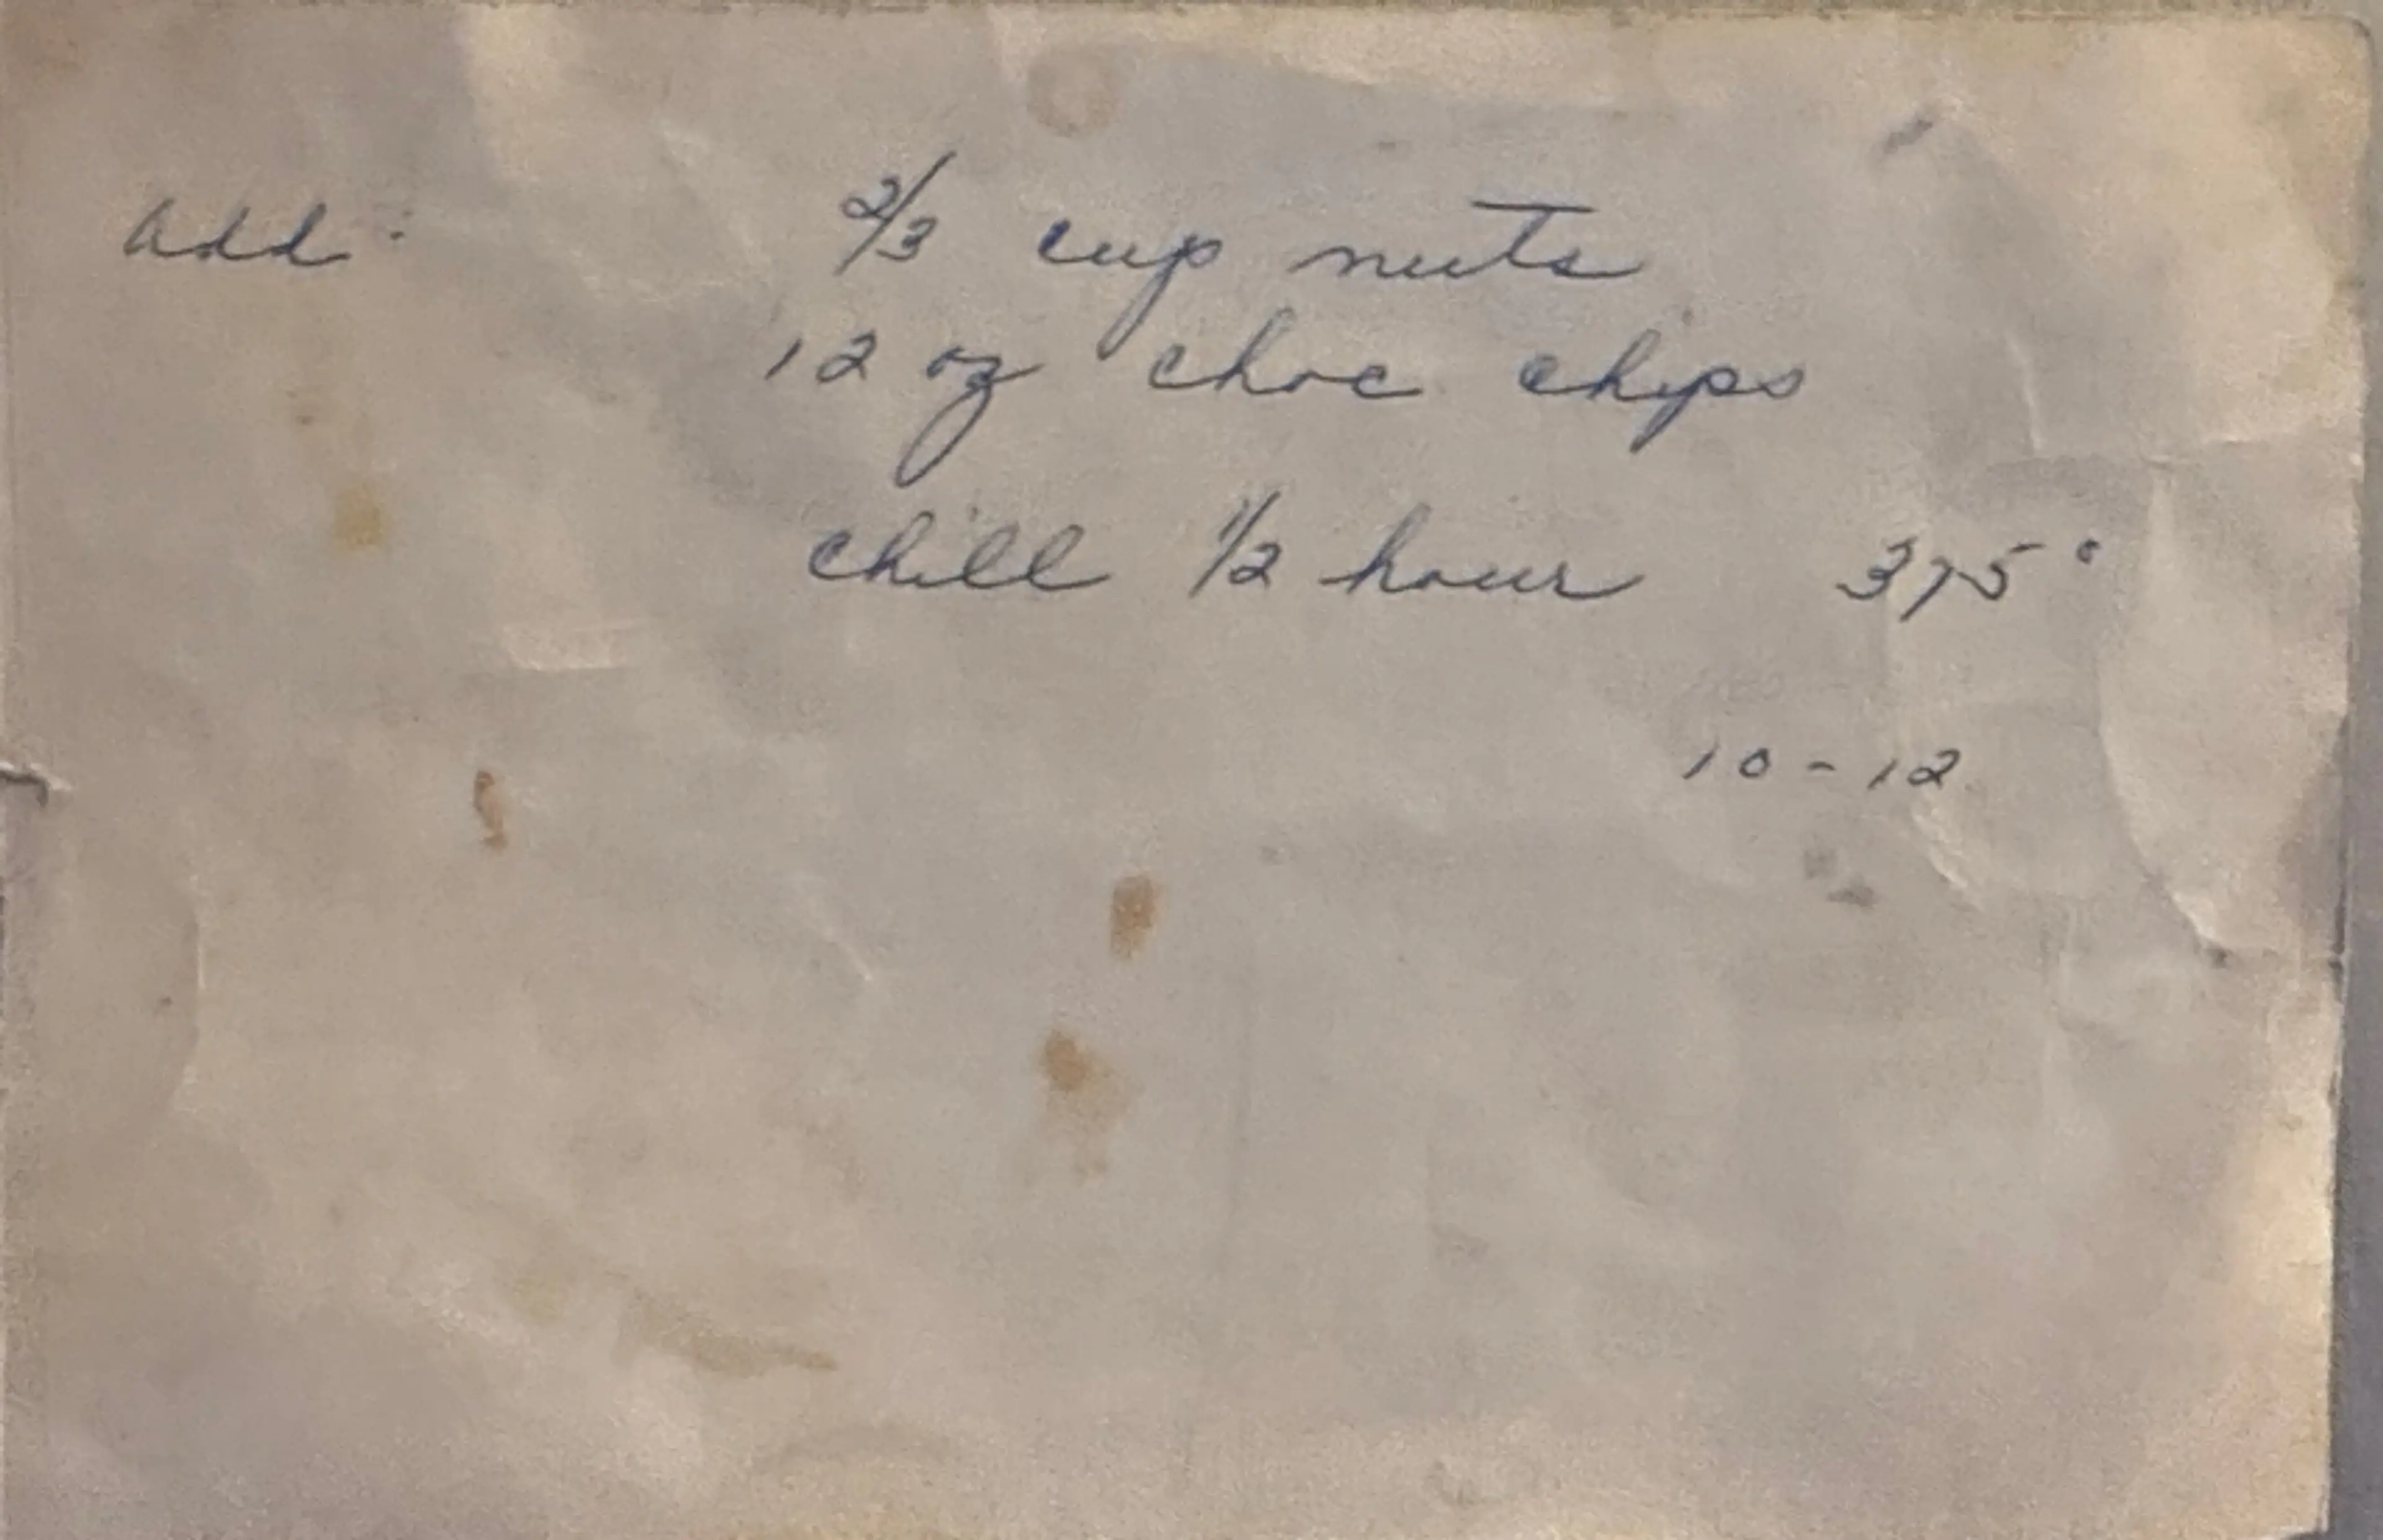 Add: 2/3 cup nuts
12 oz choc chips
chill 1/2 hour 375°
10-12